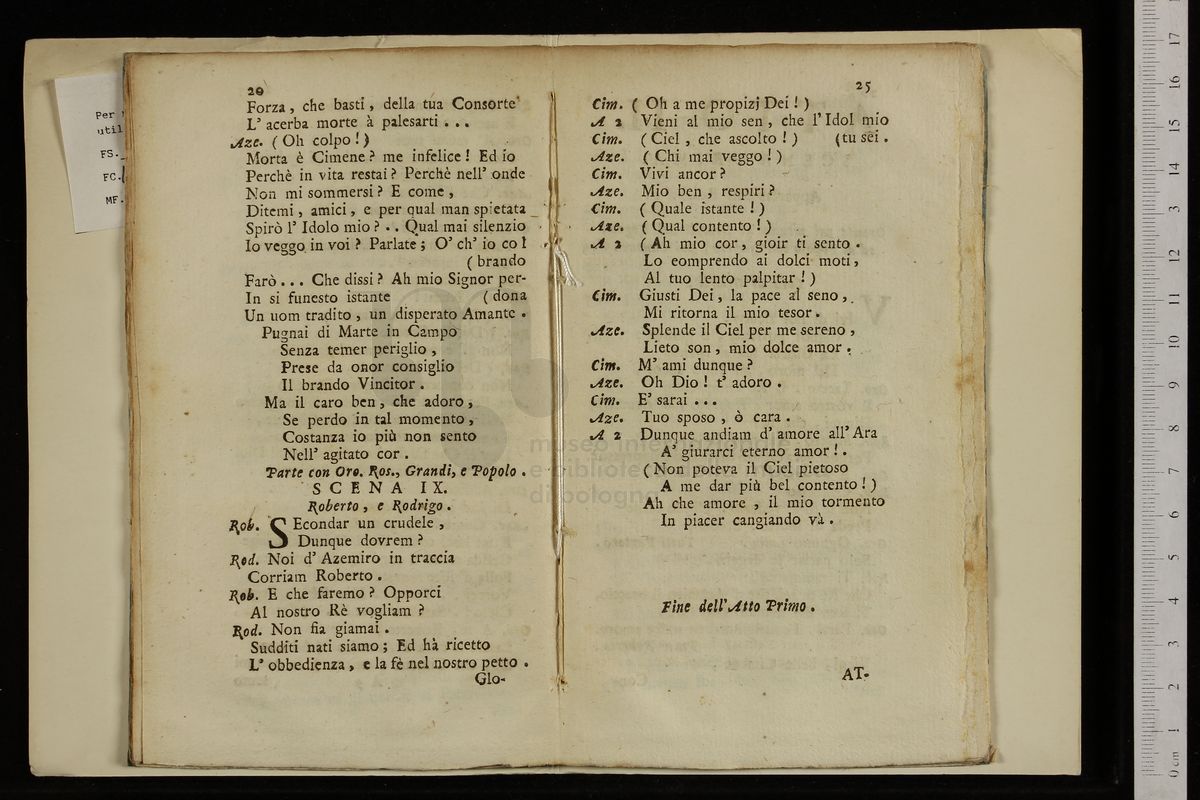 20
Forza, che basti, della tua Consorte
L' acerba morte à palesarti . . .
Aze. ( Oh colpo ! )
Morta è Cimene ? me infelice ! Ed io
Perchè in vita restai ? Perchè nell' onde
Non mi sommersi ? E come ,
Ditemi , amici , e per qual man spietata
Spirò l' Idolo mio ? . . Qual mai silenzio
Io veggo in voi ? Parlate ; O' ch' io col
( brando
Farò . . . Che dissi ? Ah mio Signor per-
In si funesto istante ( dona
Un uom tradito , un disperato Amante .
Pugnai di Marte in Campo
Senza temer periglio ,
Prese da onor consiglio
Il brando Vincitor .
Ma il caro ben , che adoro ,
Se perdo in tal momento ,
Costanza io più non sento
Nell' agitato cor .
Parte con Oro. Ros., Grandi, e Popolo .
SCENA IX.
Roberto , e Rodrigo .
Rob. SEcondar un crudele ,
Dunque dovrem ?
Rod. Noi d' Azemiro in traccia
Corriam Roberto .
Rob. E che faremo ? Opporci
Al nostro Rè vogliam ?
Rod. Non fia giamai .
Sudditi nati siamo ; Ed hà ricetto
L' obbedienza , e la fè nel nostro petto .
Glo-
25
Cim. ( Oh a me propizj Dei ! )
A 2 Vieni al mio sen , che l' Idol mio
Cim. ( Ciel , che ascolto ! ) ( tu sei .
Aze. ( Chi mai veggo ! )
Cim. Vivi ancor ?
Aze. Mio ben , respiri ?
Cim. ( Quale istante ! )
Aze. ( Qual contento ! )
A 2 ( Ah mio cor , gioir ti sento .
Lo eomprendo ai dolci moti ,
Al tuo lento palpitar ! )
Cim. Giusti Dei , la pace al seno ,
Mi ritorna il mio tesor .
Aze. Splende il Ciel per me sereno ,
Lieto son , mio dolce amor .
Cim. M' ami dunque ?
Aze. Oh Dio ! t' adoro .
Cim. E' sarai . . .
Aze. Tuo sposo , ò cara .
A 2 Dunque andiam d' amore all' Ara
A' giurarci eterno amor ! .
( Non poteva il Ciel pietoso
A me dar più bel contento ! )
Ah che amore , il mio tormento
In piacer cangiando và .
Fine dell' Atto Primo .
AT-
Per
util
FS.
FC.
MF.
museo internazionale
e biblioteca
di bologna
0 cm 1 2 3 4 5 6 7 8 9 10 11 12 13 14 15 16 17